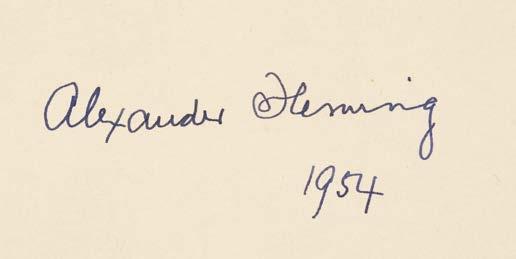 Alexander Fleming
1954